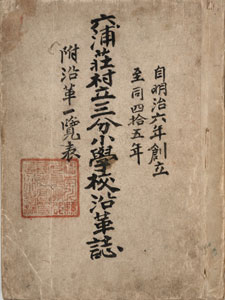 自明治六年創立
至同四拾五年
六浦荘村立三分小學校沿革誌
附沿革一覧表